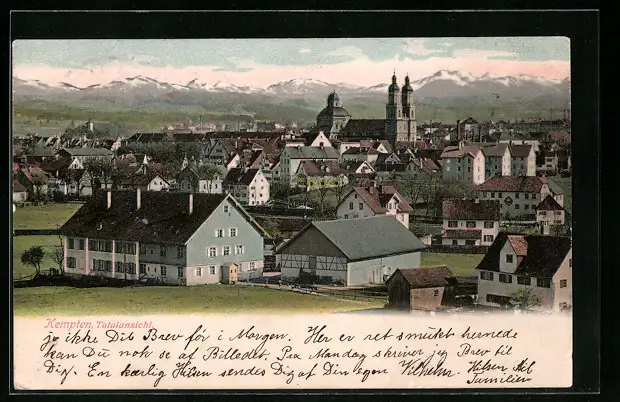 Kempten, Totalansicht.
jo ikke Dit Brev før i Morgen. Her er ret smukt hernede
kan Du nok se af Billedet. Paa Mandag skriver jeg Brev til
Dig. En kærlig Hilsen sendes Dig af Din egen Vilhelm. Hilsen til
Familien